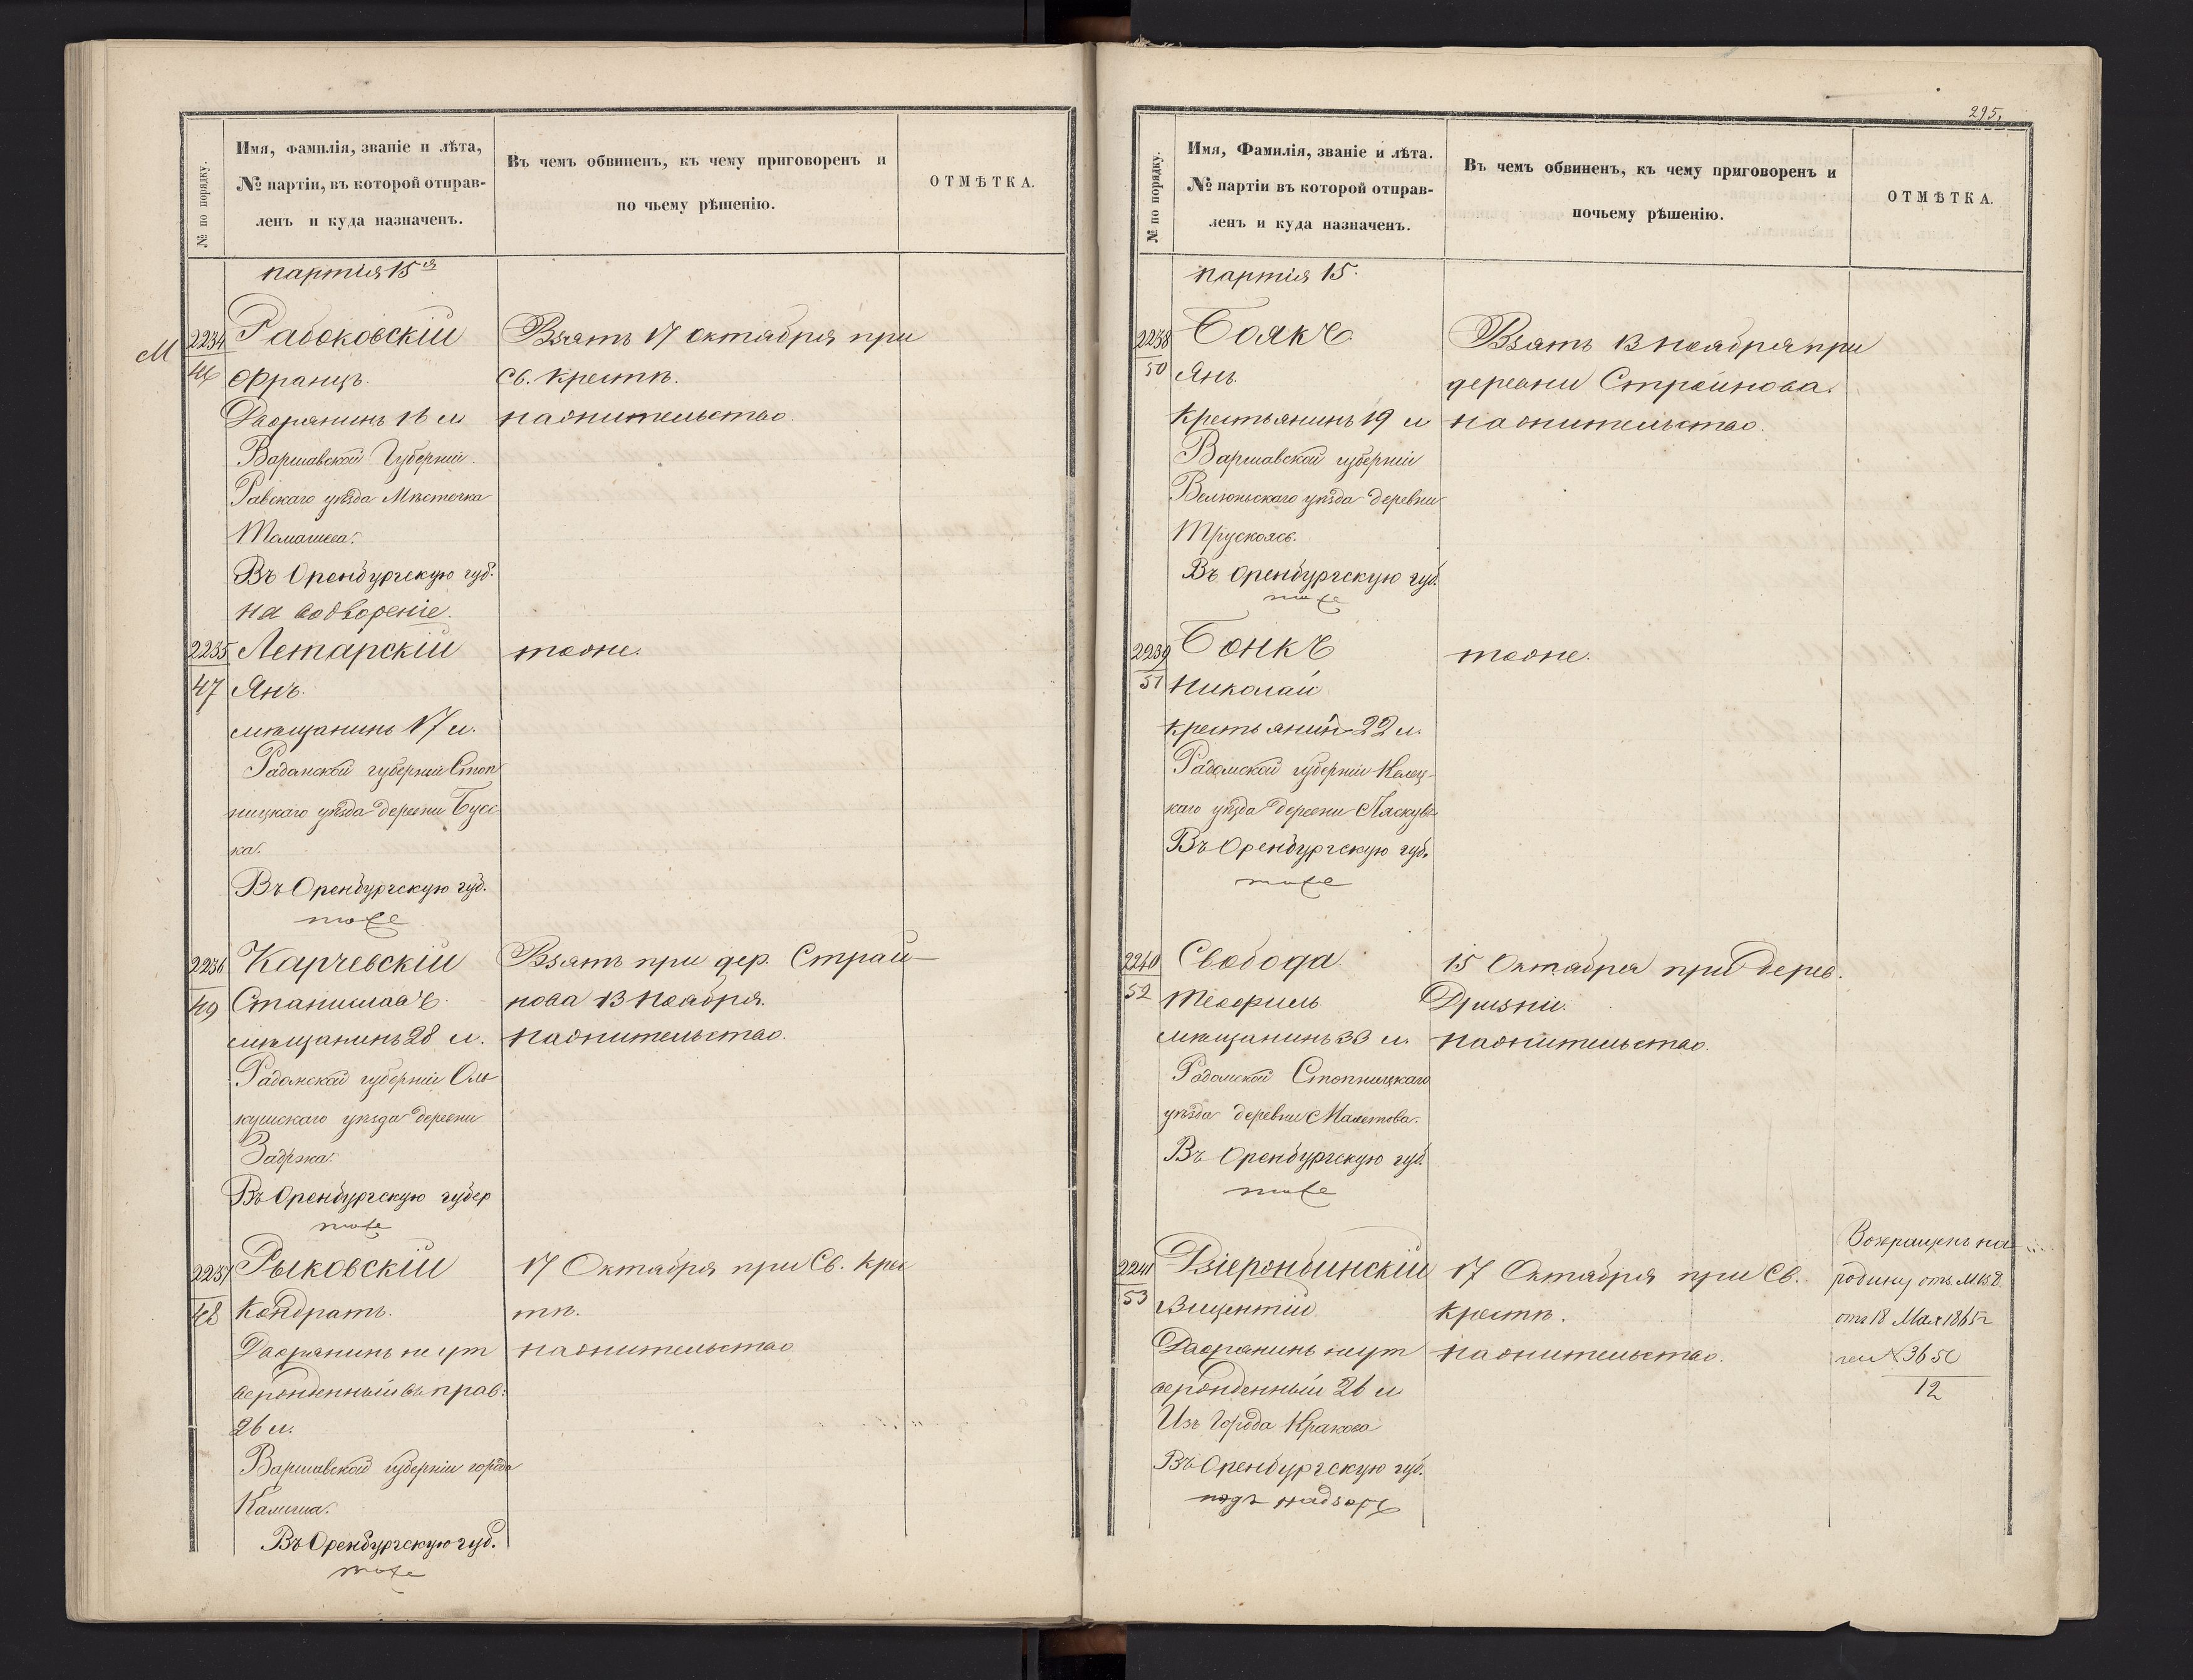 № по порядку.
Имя, фамилія, званіе и лѣта,
№ партіи, въ которой отправ-
ленъ и куда назначенъ.
Въ чемъ обвиненъ, къ чему приговоренъ и
по чьему рѣшенію.
ОТМѢТКА.
партія 15я
М
2234
46
Францъ.
Дворянинъ 16 л
Варшавской Губерніи
Равскаго уѣзда Мѣстечка
Въ Оренбургскую губ.
на водвореніе.
Взятъ 17 Октября при
Св. Крестѣ.
на жительство.
2235
47
Летарскій
Янъ.
мѣщанинъ 17 л.
Радомской губерніи Стоп
ницкаго уѣзда деревни Бусс
ка.
Въ Оренбургскую губ.
тоже
тоже.
2236
49
Карчевскій
Станиславъ.
мѣщанинъ 28 л.
Радомской губерніи Оль
кушскаго уѣзда деревни
Въ Оренбургскую губер
тоже
Взятъ при дер. Строй
нова 13 Ноября.
на жительство.
2237
48
Рыковскій
Кондратъ.
Дворянинъ не ут
вержденный въ прав.
26 л.
Варшавской губерніи города
Калиша.
Въ Оренбургскую губ.
тоже
17 Октября при Св. Крес
тѣ.
на жительство
295.
№ по порядку.
Имя, Фамилія, званіе и лѣта.
№ партіи въ которой отправ-
ленъ и куда назначенъ.
Въ чемъ обвиненъ, къ чему приговоренъ и
почьему рѣшенію.
ОТМѢТКА.
партія 15.
2238
50
Боякъ
Янъ.
Крестьянинъ 19 л
Варшавской губерніи
Велюньскаго уѣзда деревни
Въ Оренбургскую губ.
тоже
Взятъ 13 Ноября при
деревни Стройнова.
на жительство.
2239
51
Бонкъ
Николай
крестьянинъ 22 л.
Радомской губерніи Келец-
каго уѣзда деревни
Въ Оренбургскую губ.
тоже
тоже.
2240
52
Свобода.
Теофиль.
мѣщанинъ 33 л.
Радомской Стопницкаго
уѣзда деревни
Въ Оренбургскую губ.
тоже
15 Октября при дерев.
на жительство.
2241
53
Вицентій
Дворянинъ неут
вержденный 26 л
Изъ Города Кракова
Въ Оренбургскую губ.
подъ надзоръ
17 Октября при Св.
Крестѣ.
на жительство.
Возвращенъ на
родину
отъ 18 Мая 1865 г
№ 3650
12